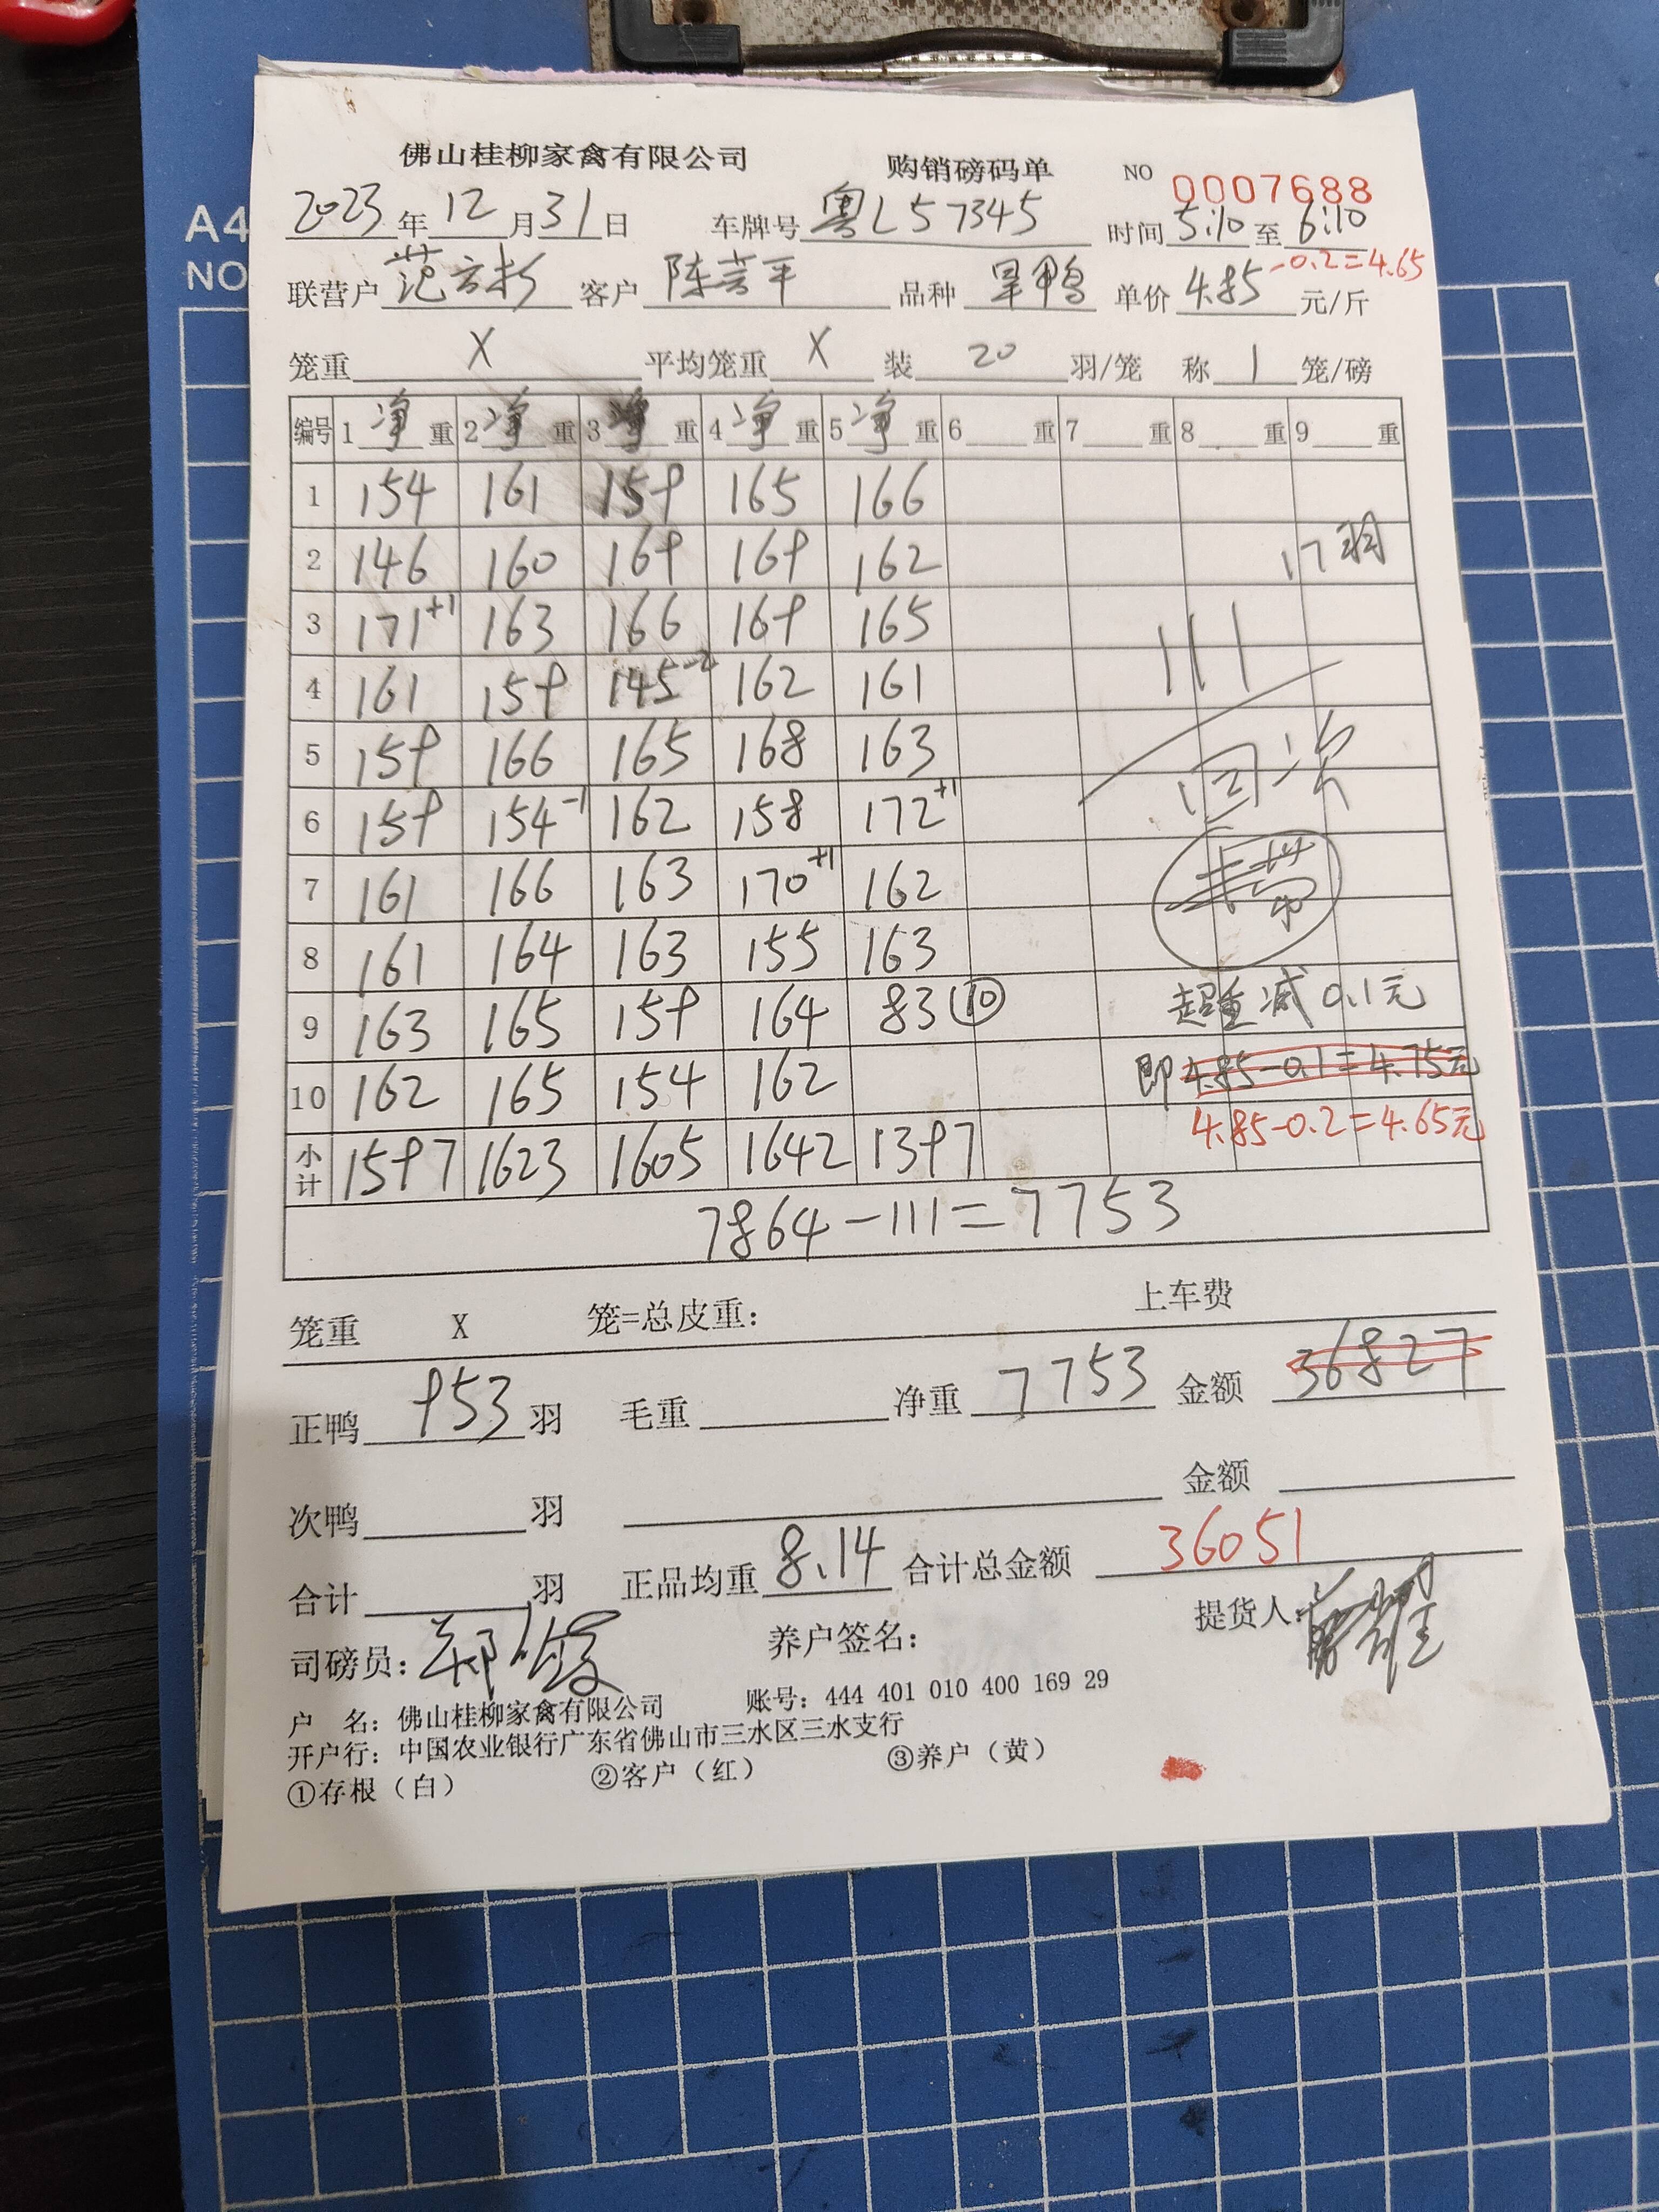 A4
NO
佛山桂柳家禽有限公司 购销磅码单 NO 0007688
2023年12月31日 车牌号 粤L57345 时间 5:10 至 6:10
联营户 范 客户 陈芳平 品种 旱鸭 单价 4.85 元/斤 -0.2=4.65
笼重 X 平均笼重 X 装 20 羽/笼 称 1 笼/磅
编号 1 净 重 2 净 重 3 净 重 4 净 重 5 净 重 6 重 7 重 8 重 9 重
1 154 161 159 165 166
2 146 160 169 169 162 17羽
3 171+1 163 166 169 165 111
4 161 159 145-2 162 161
5 159 166 165 168 163 回次
6 159 154-1 162 158 172+1
7 161 166 163 170+1 162
8 161 164 163 155 163
9 163 165 159 164 83⑩ 超重减0.1元
10 162 165 154 162 即4.85-0.1=4.75元
4.85-0.2=4.65元
小计 1597 1623 1605 1642 1397
7864-111=7753
笼重 X 笼=总皮重： 上车费
正鸭 953 羽 毛重 净重 7753 金额 36827
次鸭 羽 金额
合计 羽 正品均重 8.14 合计总金额 36051
司磅员： 养户签名： 提货人：
户 名：佛山桂柳家禽有限公司 账号：444 401 010 400 169 29
开户行：中国农业银行广东省佛山市三水区三水支行
①存根（白） ②客户（红） ③养户（黄）